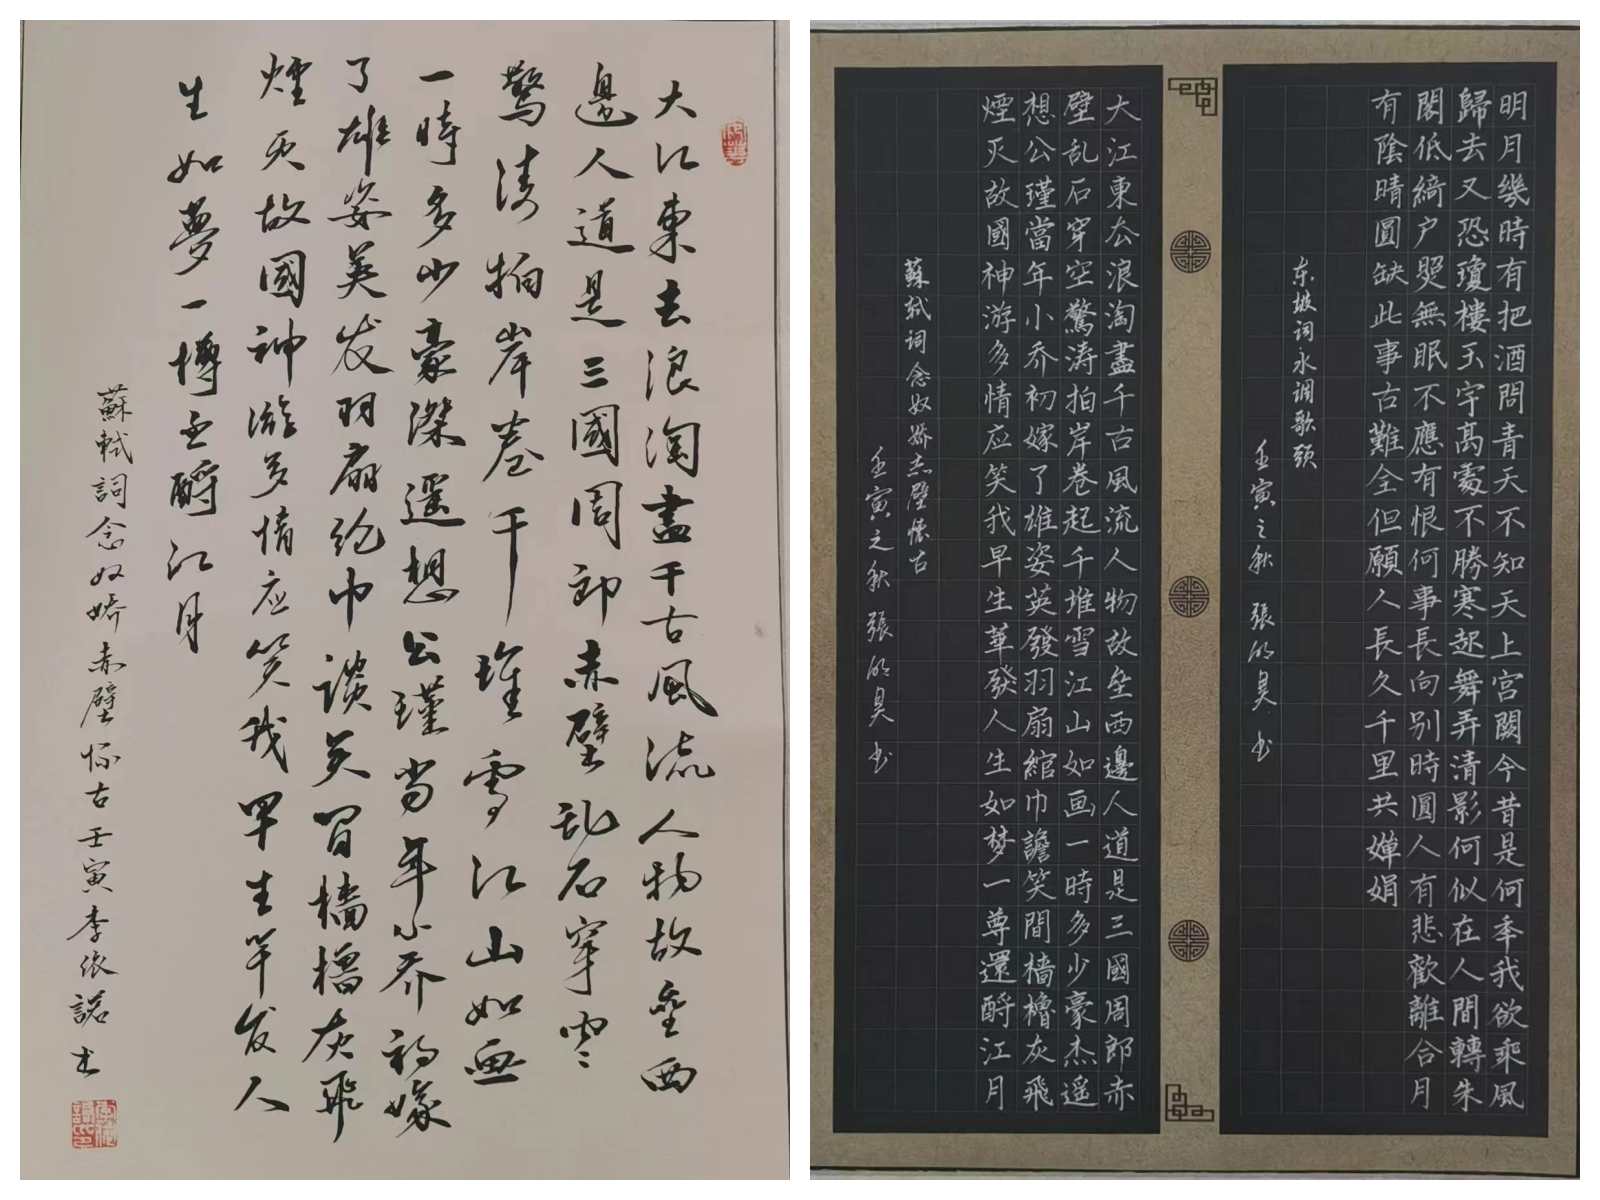 大江東去浪淘盡千古風流人物故壘西
邊人道是三國周郎赤壁乱石穿空
驚涛拍岸卷千堆雪江山如画
一時多少豪傑遥想公瑾当年小乔初嫁
了雄姿英发羽扇纶巾談笑间檣櫓灰飛
煙灭故國神游多情应笑我早生华发人
生如夢一樽还酹江月
蘇軾詞念奴嬌赤壁怀古壬寅李依諾书
明月幾時有把酒問青天不知天上宫闕今昔是何年我欲乘風
歸去又恐瓊樓玉宇高處不勝寒起舞弄清影何似在人間轉朱
閣低綺户照無眠不應有恨何事長向别時圓人有悲歡離合月
有陰晴圓缺此事古難全但願人長久千里共嬋娟
东坡词水调歌頭
壬寅之秋 張 昊 书
大江東去浪淘盡千古風流人物故垒西邊人道是三國周郎赤
壁乱石穿空驚涛拍岸卷起千堆雪江山如画一時多少豪杰遥
想公瑾當年小乔初嫁了雄姿英發羽扇綰巾談笑間檣櫓灰飛
煙灭故國神游多情应笑我早生華發人生如梦一尊還酹江月
蘇軾词念奴娇赤壁懷古
壬寅之秋 張 昊 书